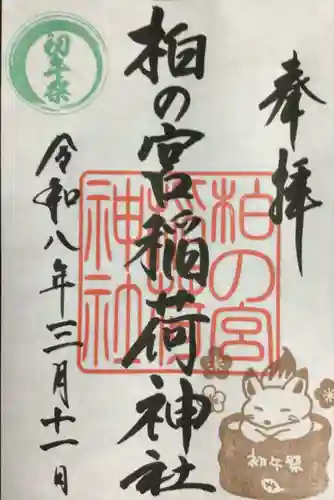 奉拝
柏の宮稲荷神社
柏の宮
稲荷
神社
初午祭
令和八年二月十一日
初午祭